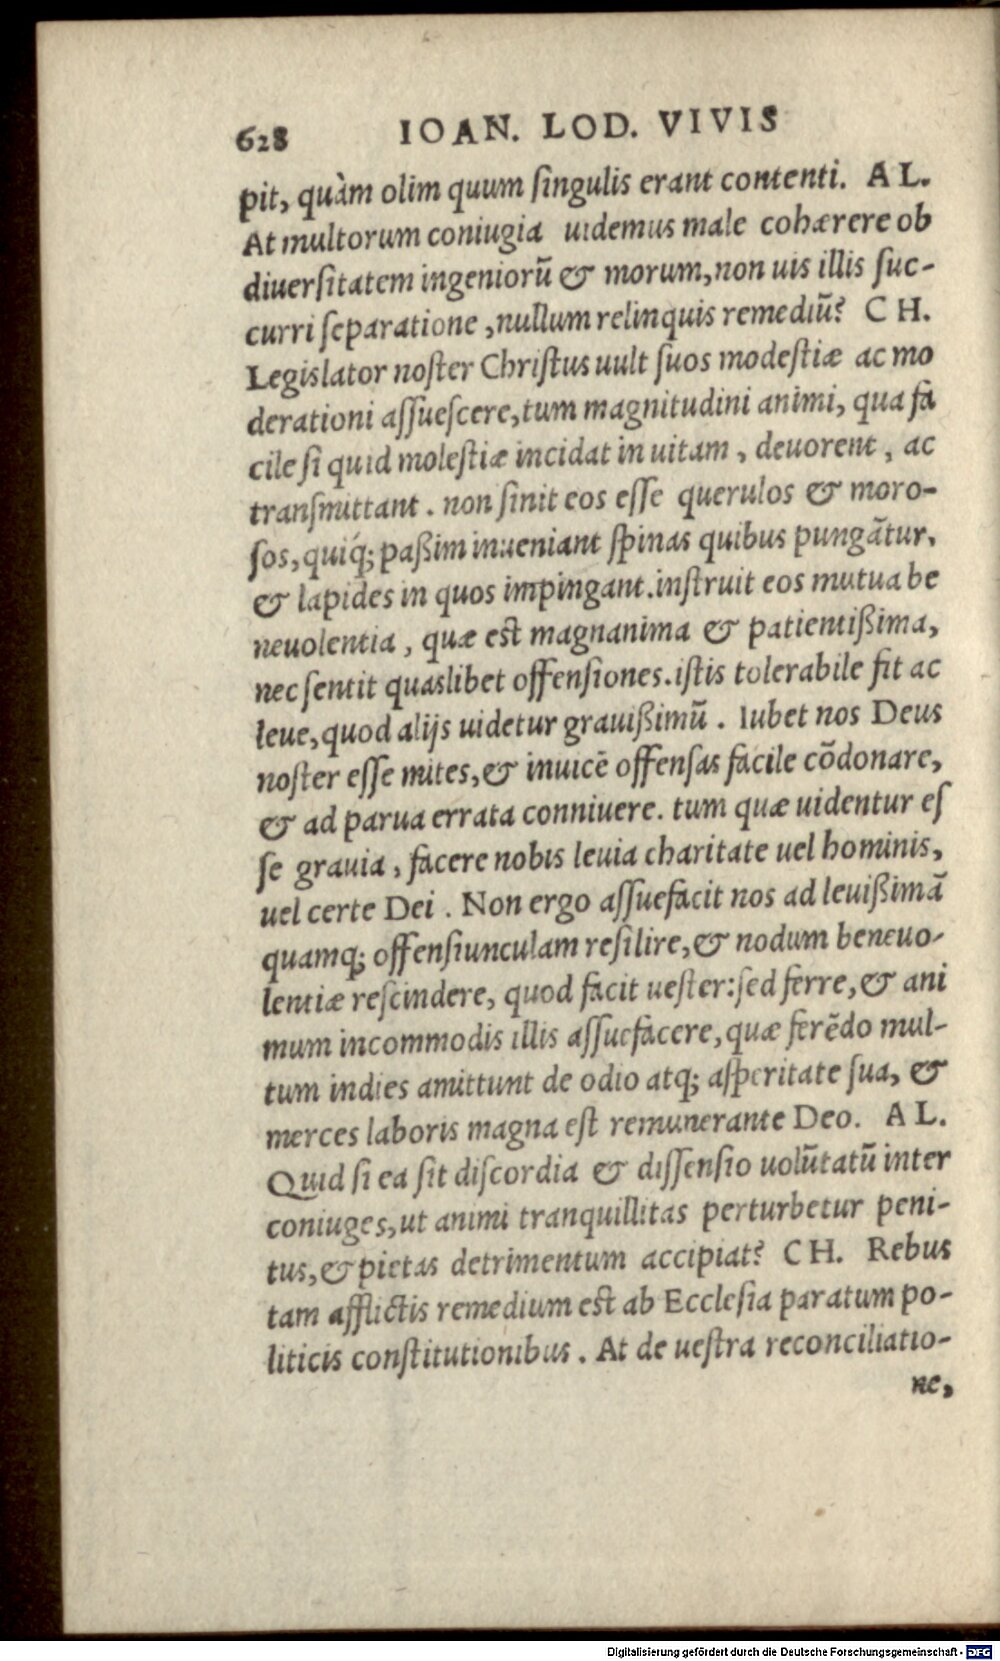 628 IOAN. LOD. VIVIS
pit, quàm olim quum ſingulis erant contenti. AL.
At multorum coniugia uidemus male cohærere ob
diuerſitatem ingeniorū & morum, non uis illis ſuc-
curri ſeparatione, nullum relinquis remediū? CH.
Legislator noſter Chriſtus uult ſuos modeſtiæ ac mo
derationi aſſueſcere, tum magnitudini animi, qua fa
cile ſi quid moleſtiæ incidat in uitam, deuorent, ac
tranſmittant. non ſinit eos eſſe querulos & moro-
ſos, quiq́; paßim inueniant ſpinas quibus pungātur,
& lapides in quos impingant. inſtruit eos mutua be
neuolentia, quæ eſt magnanima & patientißima,
nec ſentit quaslibet offenſiones. iſtis tolerabile fit ac
leue, quod alijs uidetur grauißimū. Iubet nos Deus
noſter eſſe mites, & inuicē offenſas facile cōdonare,
& ad parua errata conniuere. tum quæ uidentur eſ
ſe grauia, facere nobis leuia charitate uel hominis,
uel certe Dei. Non ergo aſſuefacit nos ad leuißimā
quamq; offenſiunculam reſilire, & nodum beneuo-
lentiæ reſcindere, quod facit ueſter: ſed ferre, & ani
mum incommodis illis aſſuefacere, quæ ferēdo mul-
tum indies amittunt de odio atq; aſperitate ſua, &
merces laboris magna eſt remunerante Deo. AL.
Quid ſi ea ſit diſcordia & diſſenſio uolūtatū inter
coniuges, ut animi tranquillitas perturbetur peni-
tus, & pietas detrimentum accipiat? CH. Rebus
tam afflictis remedium eſt ab Eccleſia paratum po-
liticis conſtitutionibus. At de ueſtra reconciliatio-
ne,
Digitalisierung gefördert durch die Deutsche Forschungsgemeinschaft - DFG